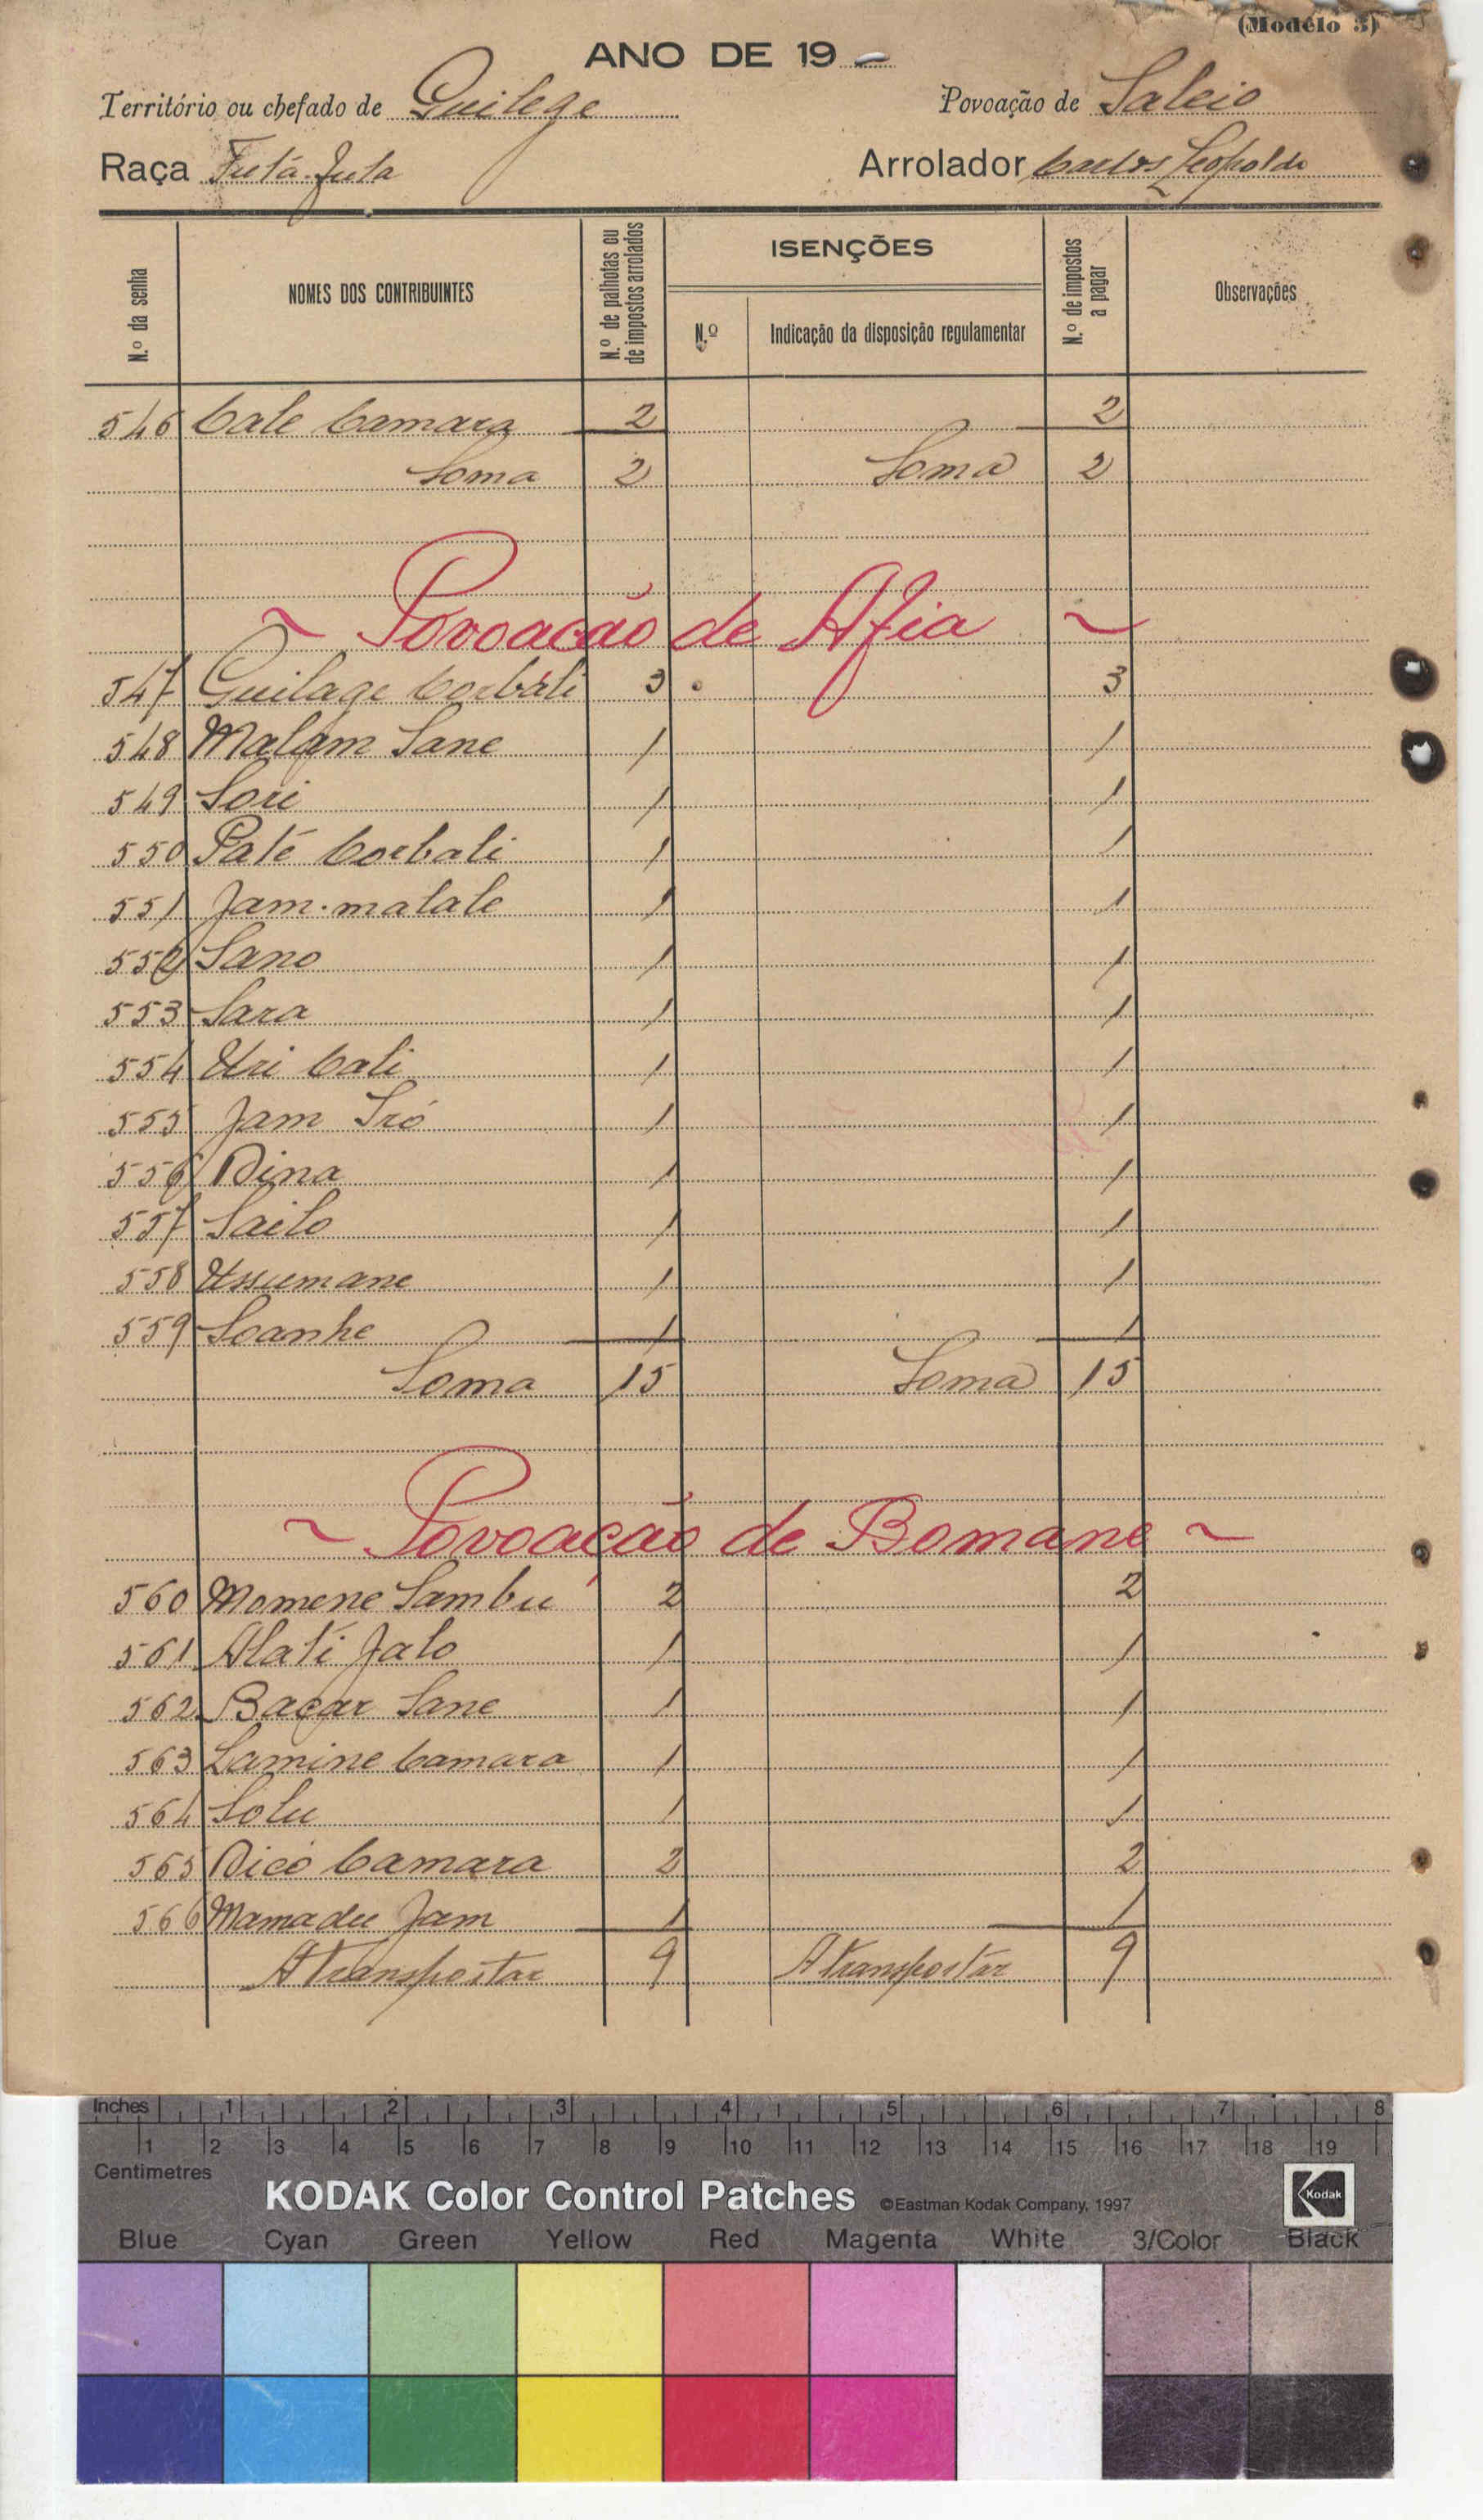 (Modêlo 3)
ANO DE 19 -
Território ou chefado de Guilege Povoação de Saleio
Raça Futá-Juta Arrolador Carlos Leopoldo
N.º da senha NOMES DOS CONTRIBUINTES N.º de palhotas ou de impostos arrolados ISENÇÕES N.º Indicação da disposição regulamentar N.º de impostos a pagar Observações
546 Cale Camara 2 2
Soma 2 Soma 2
~ Povoação de Afia ~
547 Guilage Corbáli 3 3
548 Malam Sane 1 1
549 Sori 1 1
550 Paté Corbali 1 1
551 Jam-malale 1 1
552 Sano 1 1
553 Sara 1 1
554 Uri Cali 1 1
555 Jam Iró 1 1
556 Dina 1 1
557 Sailo 1 1
558 Ussumane 1 1
559 Soanhe 1 1
Soma 15 Soma 15
~ Povoação de Bomane ~
560 Momene Sambu 2 2
561 Alati Jalo 1 1
562 Baçar Sane 1 1
563 Lamine Camara 1 1
564 Solu 1 1
565 Dicó Camara 2 2
566 Mamadu Jam 1 1
A transportar 9 A transportar 9
Inches 1 2 3 4 5 6 7 8
1 2 3 4 5 6 7 8 9 10 11 12 13 14 15 16 17 18 19
Centimetres
KODAK Color Control Patches ©Eastman Kodak Company, 1997 Kodak
Blue Cyan Green Yellow Red Magenta White 3/Color Black